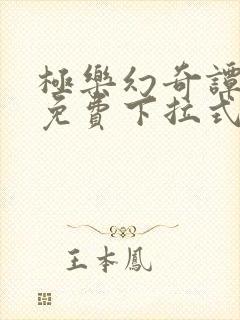 極樂幻奇譚
免費下拉式
王本鳳